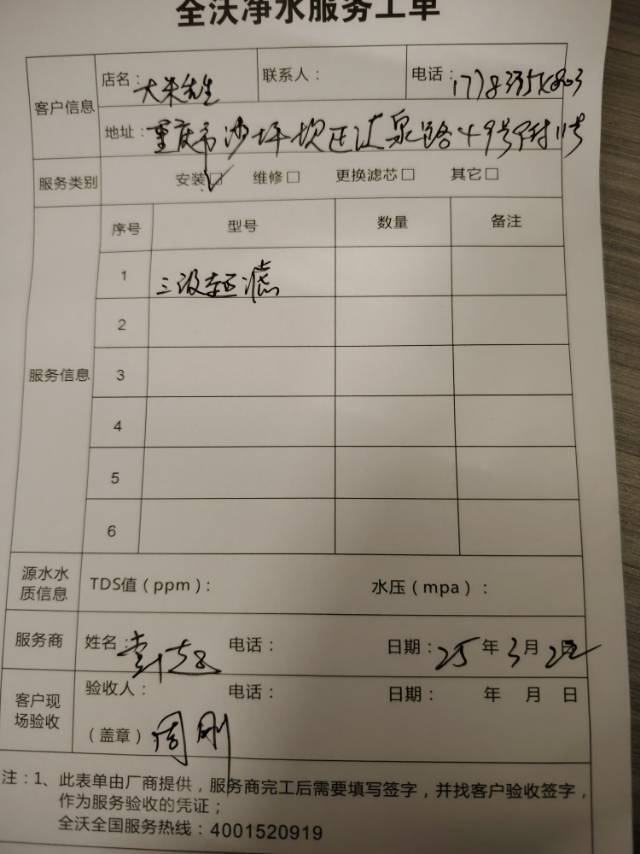 全沃净水服务工单
客户信息
店名：大米先生 联系人： 电话：
地址：重庆市沙坪坝区汇泉路49号附11号
服务类别 安装☑ 维修□ 更换滤芯□ 其它□
服务信息
序号 型号 数量 备注
1 三级超滤
2
3
4
5
6
源水水质信息 TDS值（ppm）： 水压（mpa）：
服务商 姓名： 电话： 日期：25年3月
客户现场验收 验收人： 电话： 日期： 年 月 日
（盖章）周刚
注：1、此表单由厂商提供，服务商完工后需要填写签字，并找客户验收签字，
作为服务验收的凭证；
全沃全国服务热线：4001520919